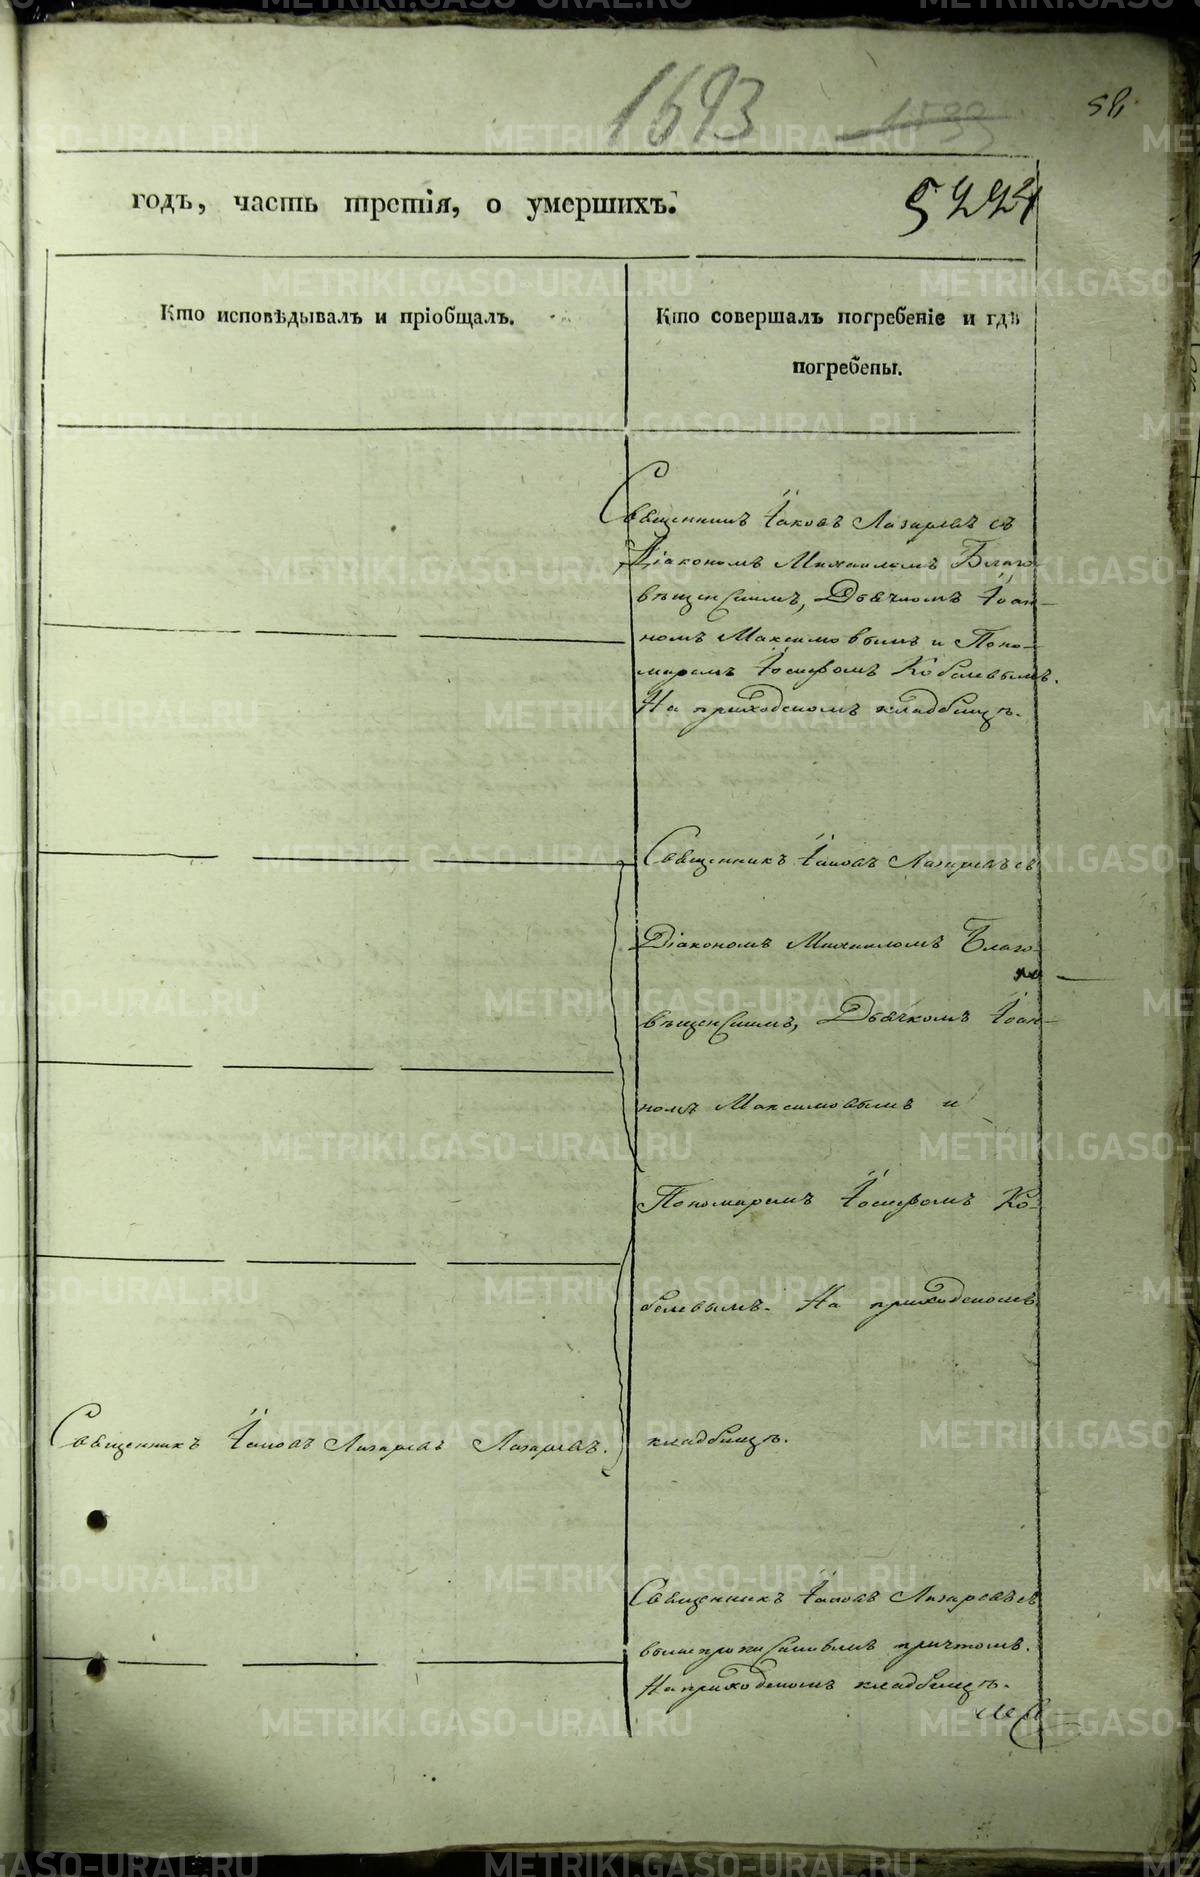 1693
58
годъ, часть третія, о умершихъ.
522
Кто исповѣдывалъ и пріобщалъ.
Кто совершалъ погребеніе и гдѣ
погребены.
Священникъ Іаковъ Лазаревъ съ
Діакономъ Михаиломъ Благо-
вѣщенскимъ, Дьячкомъ Іоан-
номъ Максимовымъ и Поно-
маремъ Іосифомъ Кобелевымъ.
На приходскомъ кладбищѣ.
Священникъ Іаковъ Лазаревъ съ
Діакономъ Михаиломъ Благо-
вѣщенскимъ, Дьячкомъ Іоан-
номъ Максимовымъ и
Пономаремъ Іосифомъ Ко-
белевымъ. На приходскомъ
Священникъ Іаковъ Лазаревъ Лазаревъ.
кладбищѣ.
Священникъ Іаковъ Лазаревъ съ
вышепрописаннымъ причтомъ.
На приходскомъ кладбищѣ.
METRIKI.GASO-URAL.RU